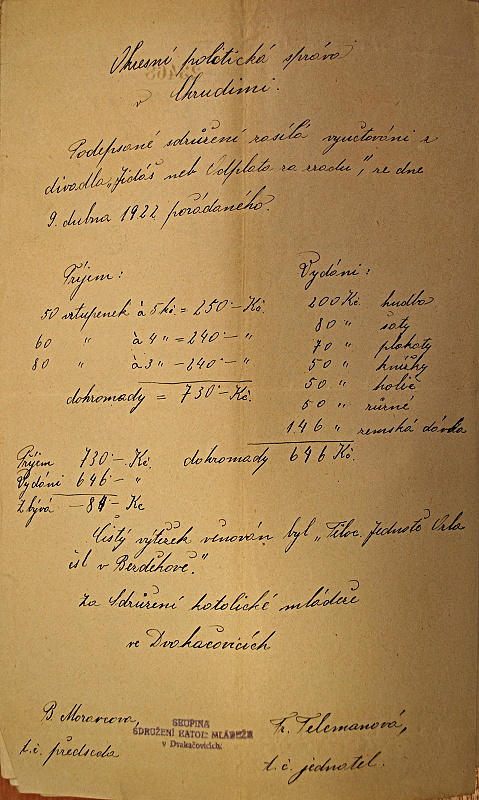 Okresní politická správa
v Chrudimi.
Podepsané sdružení zasílá vyúčtování z
divadla „Jidáš neb Odplata za zradu", ze dne
9. dubna 1922 pořádaného.
Příjem:
50 vstupenek à 5 Kč. = 250·– Kč.
60 " à 4 " = 240·– "
80 " à 3 " – 240·– "
dohromady = 730·– Kč.
Vydání:
200 Kč. hudba
80 " šaty
70 " plakáty
50 " knížky
50 " holič
50 " různé
146 " zemská dávka
dohromady 646 Kč.
Příjem 730·– Kč.
Vydání 646·– "
Zbývá – 84 – Kč
Čistý výtěžek věnován byl „Těloc. Jednotě Orla
čsl v
Za Sdružení katolické mládeže
ve Dvakačovicích
B. Moravcova,
t.č. předseda
SKUPINA
SDRUŽENÍ KATOL. MLÁDEŽE
v Dvakačovicích.
Fr. Telemanová,
t.č. jednatel.